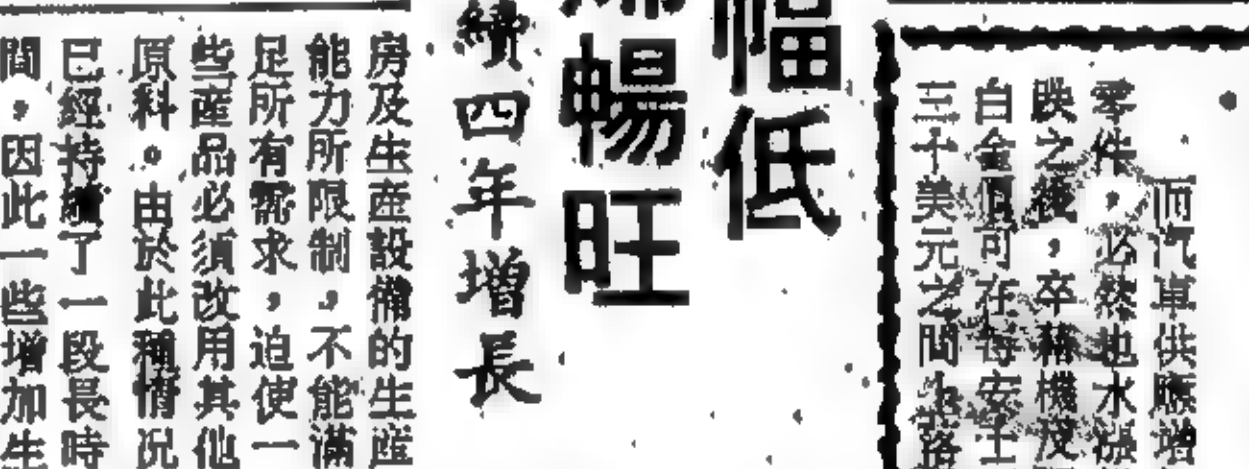 而汽車供應增
零件，必然地水漲
映之後，卒藉機反
白金價可在每安士
三十美元之間上落
幅低
暢旺
續四年增長
房及生產設備的生產
能力所限制，不能滿
足所有需求，迫使一
些產品必須改用其他
原料。由於此種情况
已經持續了一段長時
間，因此一些增加生